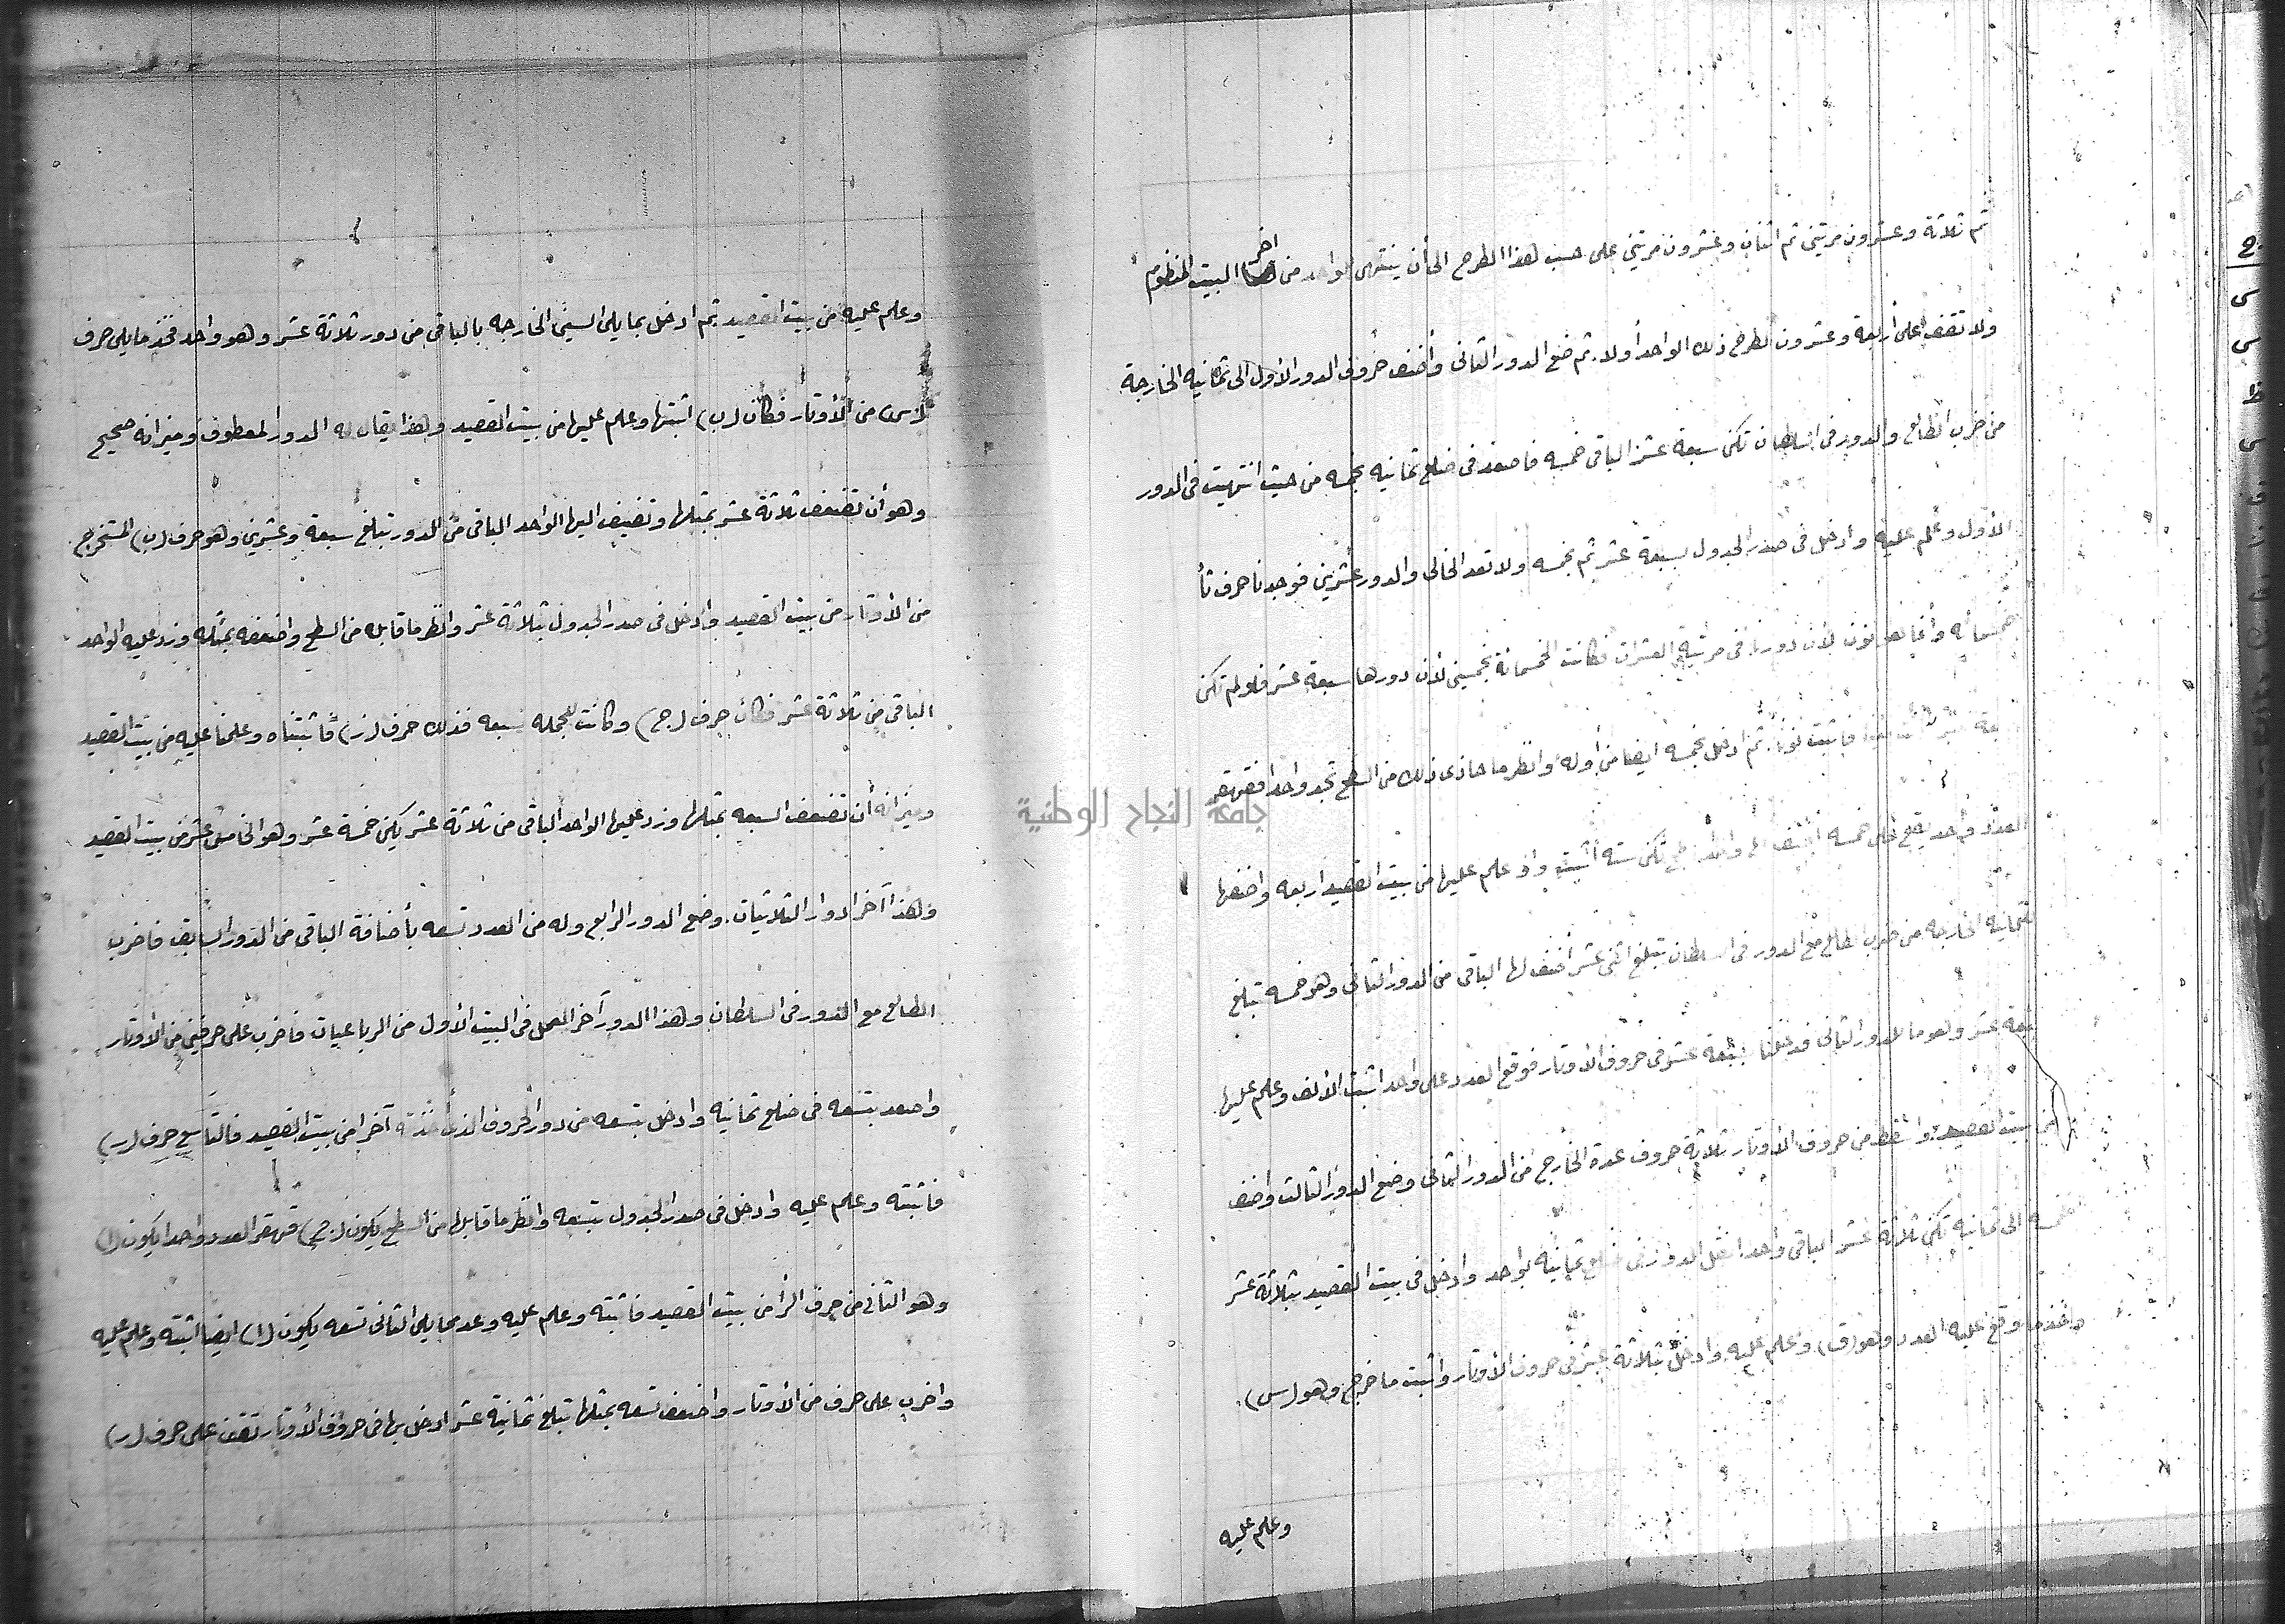 ثم ثلاثة وعشرون مرتين ثم اثنان وعشرون مرتين على حسب هذا الطرح الى أن ينتهى للواحد من اخر البيت المنظوم
ولا تقف على أربعة وعشرون لطرح ذلك الواحد أولا. ثم ضع الدور الثانى وأضف حروف الدور الأول الى ثمانيه الخارجة
من ضرب الطالع والدور فى السلطان تكن سبعة عشر الباقى خمسه فاصعد فى ضلع ثمانيه بخمسه من حيث انتهيت فى الدور
الأول وعلم عليه وادخل فى صدر الجدول بسبعة عشر ثم بخمسه ولا تعد الخالى والدور عشرين فوجدنا حرف ثأ
خمسمأيه وانما هو نون لأن دورنا فى مرتبة العشرات فكانت الخمسمائة بخمسين لأن دورها سبعة عشر فلو لم تكن
فأثبت نونا. ثم ادخل بخمسه ايضا من أوله وانظر ما حاذى ذلك من السطح تجد واحدا فقهقر
العدد واحد يقع على خمسه أضف لها واحد السطح تكن سته أثبت واو وعلم عليها من بيت القصيد اربعه واضفها
لثمانيه الخارجه من ضرب الطالع مع الدور فى السلطان تبلغ اثنى عشر أضف لها الباقى من الدور الثانى وهو خمسه تبلغ
سبعة عشر وهو ما للدور الثانى فدخلنا بسبعة عشر فى حروف الأوتار فوقع العدد على واحد اثبت الألف وعلم عليها
من بيت القصيد. واسقط من حروف الأوتار ثلاثة حروف عدة الخارج من الدور الثانى وضع الدور الثالث واضف
خمسه الى ثمانيه تكن ثلاثة عشر الباقى واحد انقل الدور فى ضلع ثمانيه بواحد وادخل فى بيت القصيد بثلاثة عشر
وخذ ما وقع عليه العدد وهو (ق) وعلم عليه وادخل بثلاثة عشر فى حروف الأوتار واثبت ما خرج وهو (س).
وعلم عليه
وعلم عليه من بيت القصيد ثم ادخل بما يلى السين الخارجه بالباقى من دور ثلاثة عشر وهو واحد فخذ ما يلى حرف
(س) من الأوتار فكان (ب) اثبتها وعلم عليها من بيت القصيد وهذا يقال له الدور المعطوف وميزانه صحيح
وهو أن تضعف ثلاثة عشر بمثلها وتضيف اليها الواحد الباقى من الدور تبلغ سبعة وعشرين وهو حرف (ب) المستخرج
من الأوتار من بيت القصيد وادخل فى صدر الجدول بثلاثة عشر وانظر ما قابله من السطح واضعفه بمثله وزد عليه الواحد
الباقى من ثلاثة عشر فكان حرف (ج) وكانت للجمله سبعه فذلك حرف (ز) فأثبتناه وعلمنا عليه من بيت القصيد
وميزانه أن تضعف السبعه بمثلها وزد عليها الواحد الباقى من ثلاثة عشر يكن خمسة عشر وهو الخامس عشر من بيت القصيد
وهذا آخر ادوار الثلاثيات. وضع الدور الرابع وله من العدد تسعه بأضافة الباقى من الدور السابق فاضرب
الطالع مع الدور فى السلطان وهذا الدور آخر العمل فى البيت الأول من الرباعيات فاضرب على حرفين من الأوتار
واصعد بتسعه فى ضلع ثمانيه وادخل بتسعه من دور الحروف الذى أخذته آخرا من بيت القصيد فالتاسع حرف (ر)
فاثبته وعلم عليه وادخل فى صدر الجدول بتسعه وانظر ما قابلها من السطح يكون (ج) قهقر العدد واحد يكون (ا)
وهو الثانى من حرف الرأ من بيت القصيد فاثبته وعلم عليه وعد مما يلى الثانى تسعه يكون (ا) ايضا اثبته وعلم عليه
واضرب على حرف من الأوتار واضعف تسعه بمثلها تبلغ ثمانية عشر ادخل بها فى حروف الأوتار تقف على حرف (ر)
جامعة النجاح الوطنية